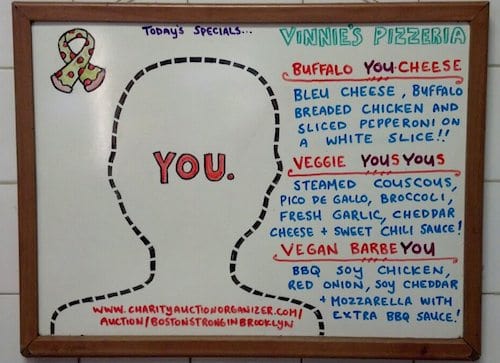 TODAY'S SPECIALS...
VINNIE'S PIZZERIA
BUFFALO YOU-CHEESE
BLEU CHEESE, BUFFALO
BREADED CHICKEN AND
SLICED PEPPERONI ON
A WHITE SLICE!!
VEGGIE YOUSYOUS
STEAMED COUSCOUS,
PICO DE GALLO, BROCCOLI,
FRESH GARLIC, CHEDDAR
CHEESE + SWEET CHILI SAUCE!
VEGAN BARBEYOU
BBQ SOY CHICKEN,
RED ONION, SOY CHEDDAR
+ MOZZARELLA WITH
EXTRA BBQ SAUCE!
YOU.
WWW.CHARITYAUCTIONORGANIZER.COM/
AUCTION/BOSTONSTRONGINBROOKLYN